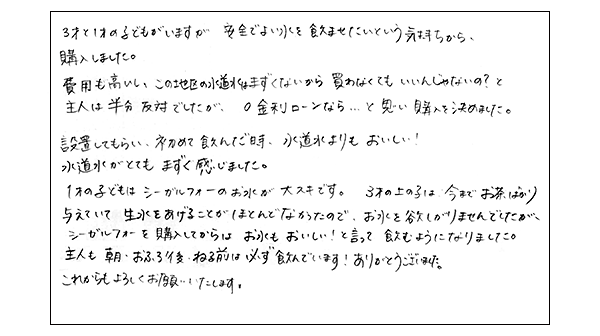 3才と1才の子どもがいますが 安全でよい水を飲ませたいという気持ちから、
購入しました。
費用も高いし、この地区の水道水はまずくないから 買わなくてもいいんじゃないの？と
主人は半分反対でしたが、0金利ローンなら…と思い購入を決めました。
設置してもらい、初めて飲んだ時、水道水よりもおいしい！
水道水がとてもまずく感じました。
1才の子どもはシーガルフォーのお水が大スキです。 3才の上の子は今までお茶ばかり
与えていて生水をあげることがほとんどなかったので、お水を欲しがりませんでしたが、
シーガルフォーを購入してからは お水もおいしい！と言って飲むようになりました。
主人も朝・おふろ後・ねる前は必ず飲んでいます！ありがとうございました。
これからもよろしくお願いいたします。